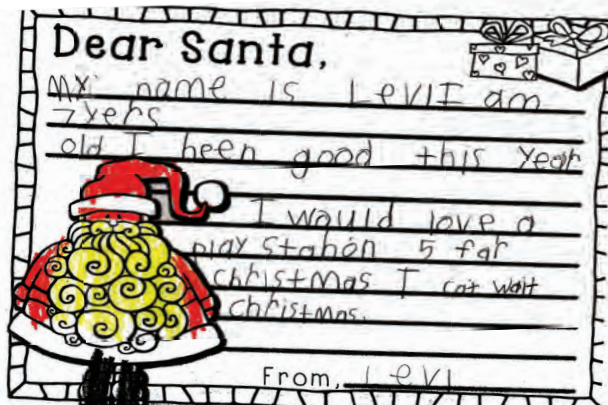 Dear Santa,
My name is Levi I am
7 yers
old I heen good this year
I would love a
play station 5 far
christmas I cat wait
christmas.
From, Levi